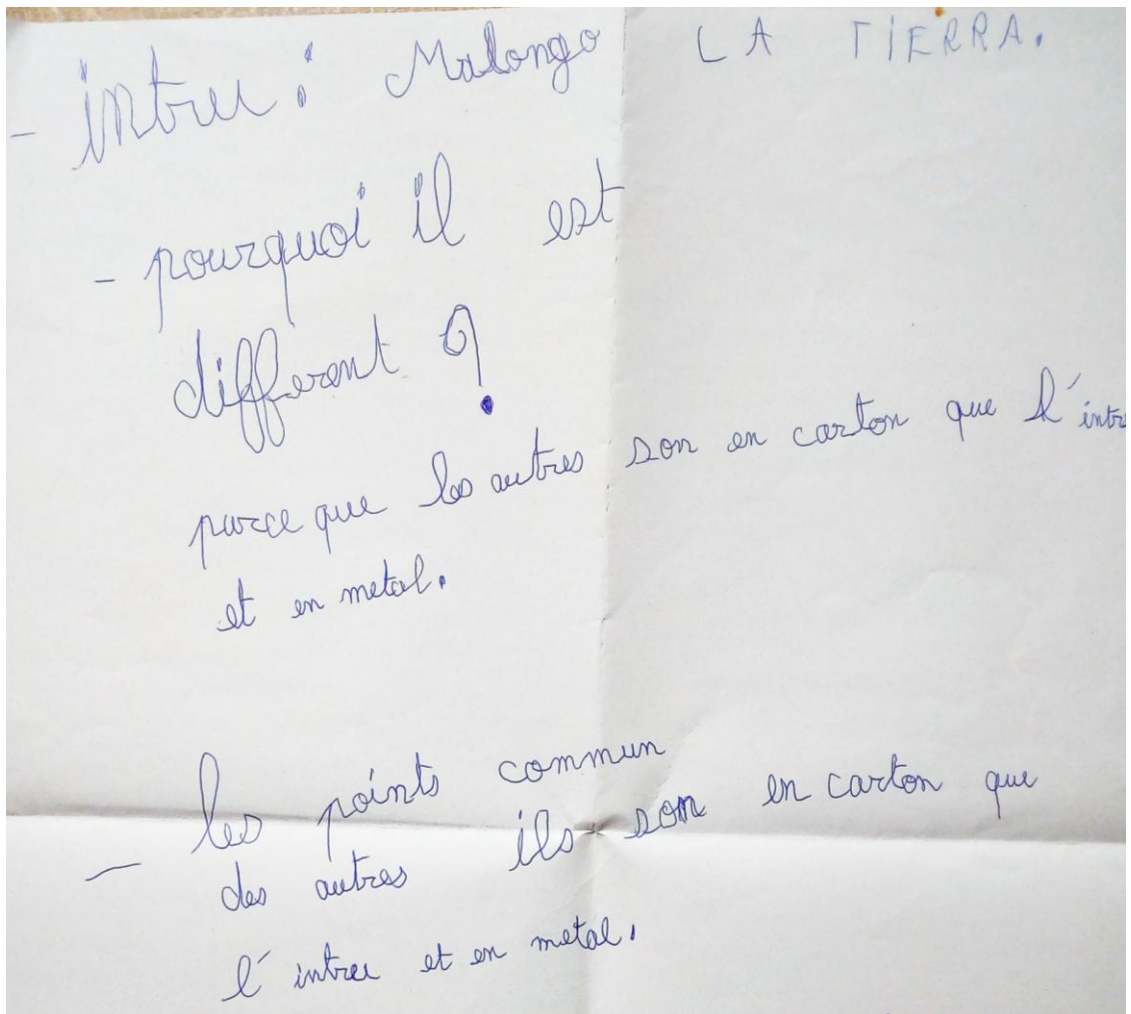 - intru : Malongo LA TIERRA.
- pourquoi il est
different ?
parce que les autres son en carton que l'intru
et en metal.
- les points commun
des autres ils son en carton que
l'intru et en metal.